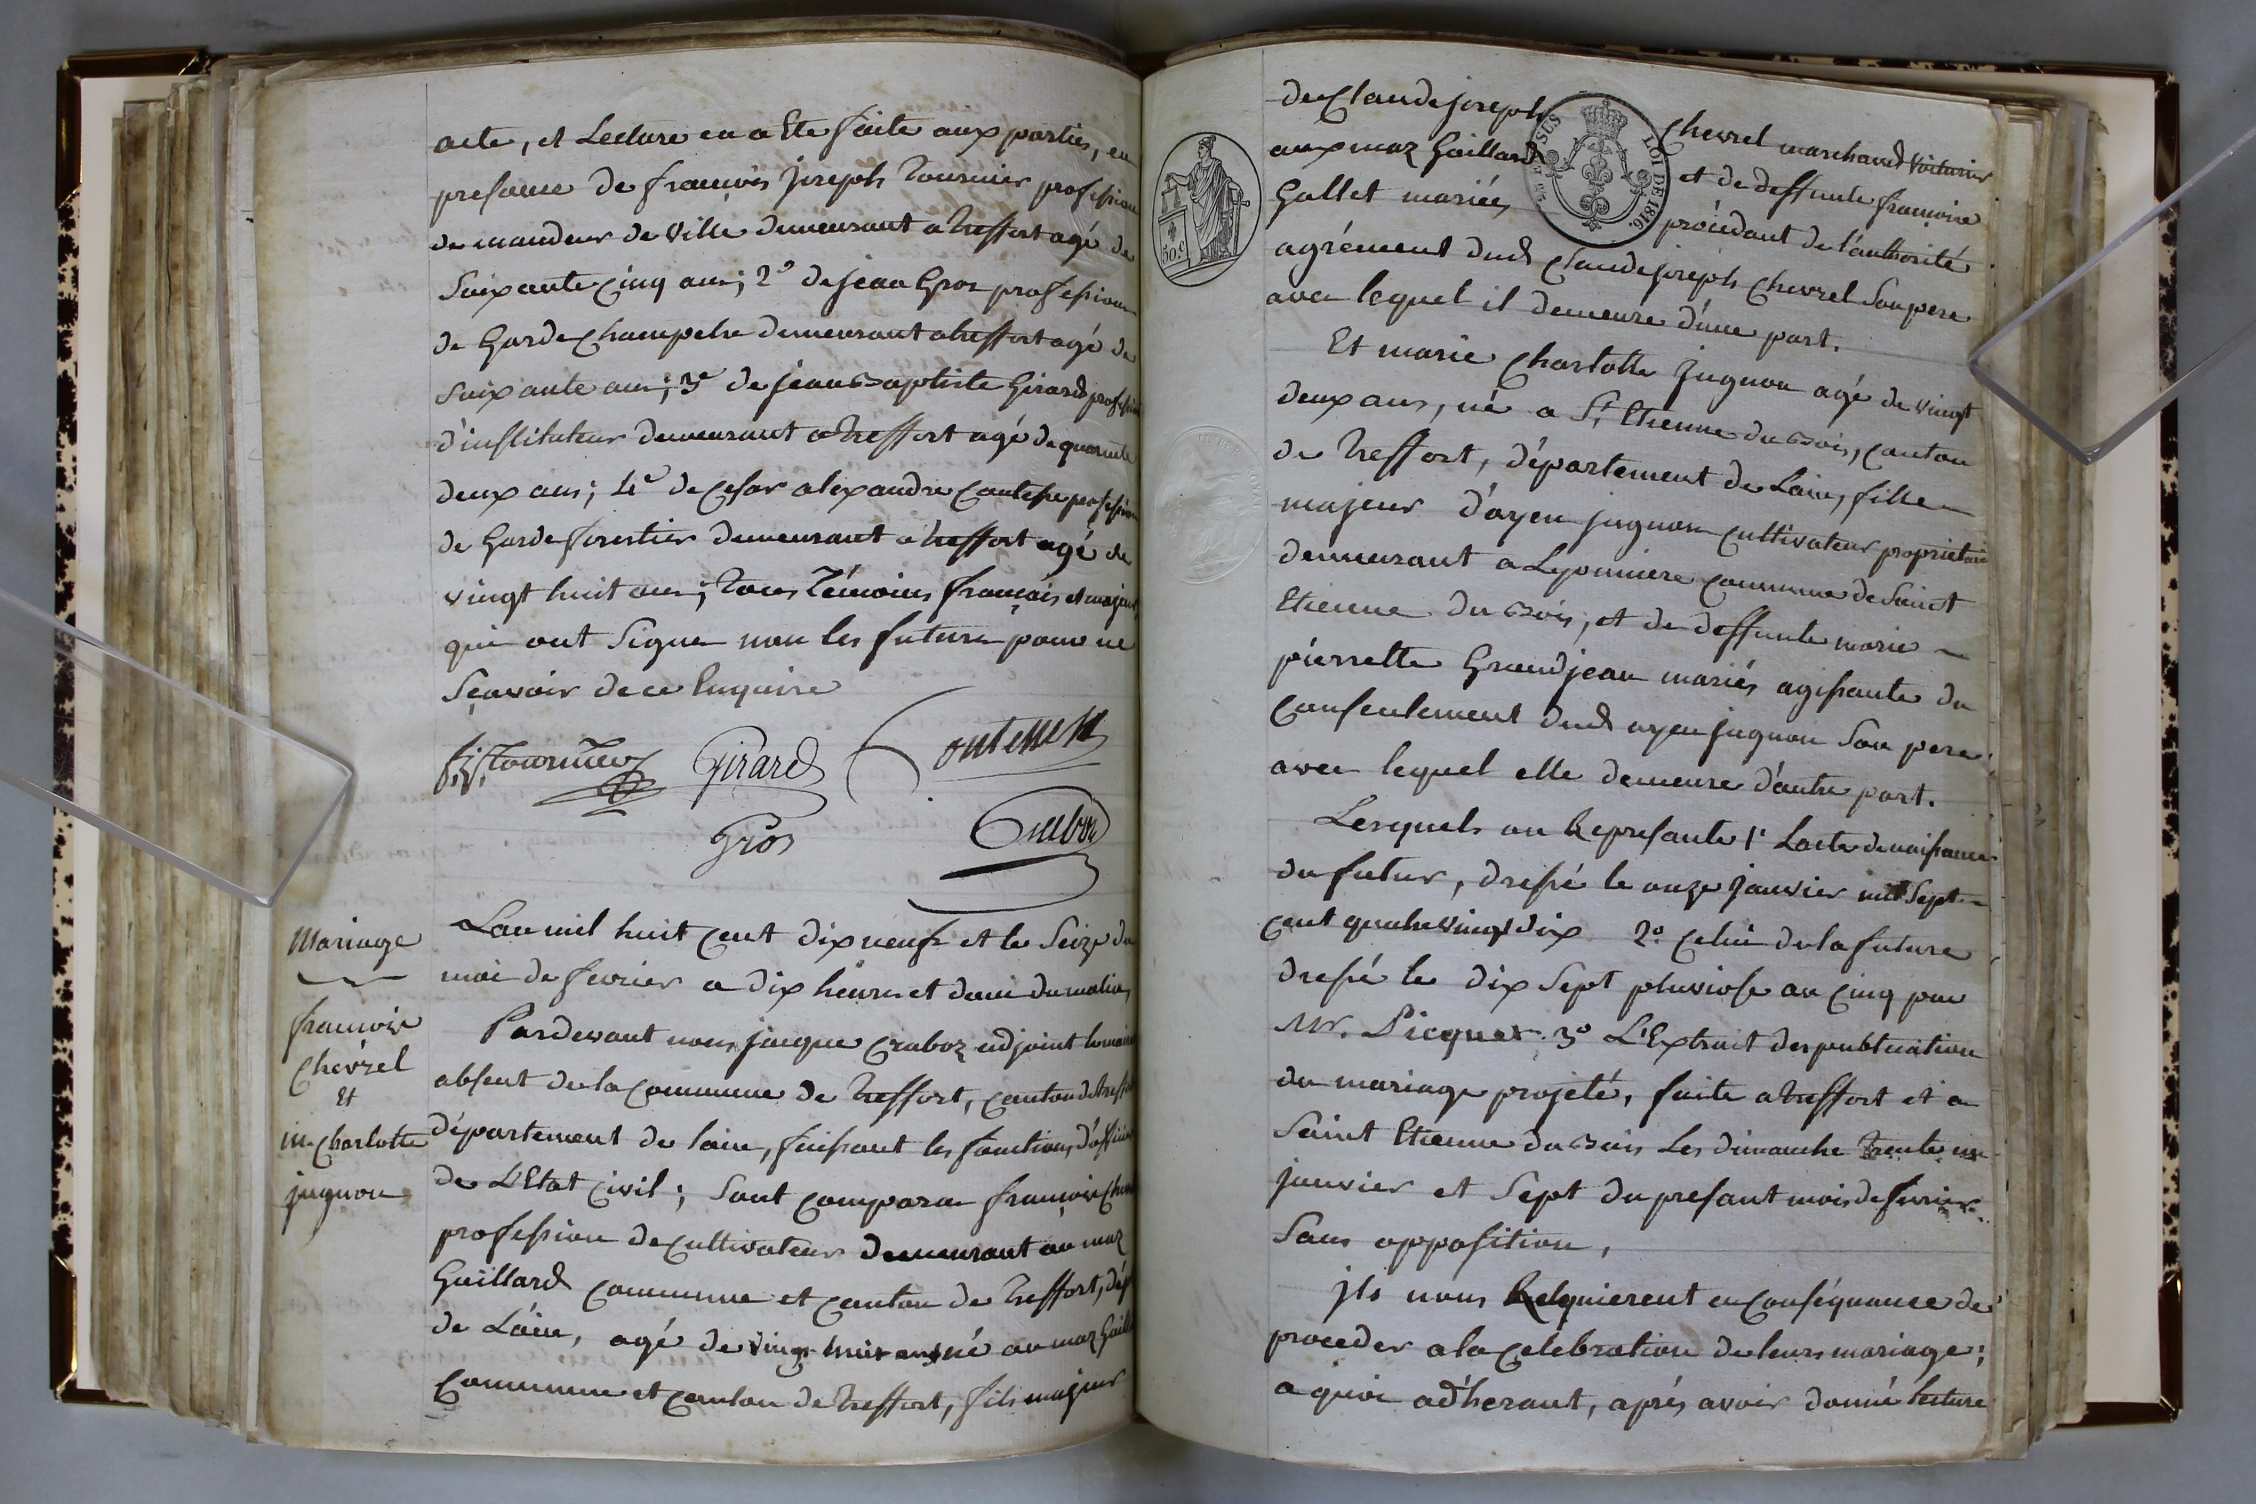 acte, et Lecture en a Ete faite aux parties, en
presance de françois Joseph Tournier profession
de mandeur de Ville demeurant a treffort agé de
Soixante Cinq ans; 2º de jean Gros profession
de Garde Champetre demeurant a treffort agé de
Soixante ans; 3e de jean Baptiste Girard profession
d'instituteur demeurant a treffort agé de quarante
deux ans; 4e de Cesar alexandre Contesse profession
de Garde forestier demeurant a treffort agé de
vingt huit ans; Tous Témoins français et majeurs
qui ont Signe non les futurs pour ne
Sçavoir de ce Enquire
f. j. Tournier Girard Contesse
Gros Craboz
Mariage
françois
Chevrel
Et
m. Charlotte
jugnon
Lan mil huit Cent dix neuf et le Seize du
moi de fevrier a dix heures et demi du matin,
Pardevant nous jacque Craboz adjoint le maire
absent de la Commune de Treffort, Canton de treffort
département de lain, faissant les fonctions d'officier
de L'Etat Civil; Sont Comparu françois Chevrel
profession de Cultivateur demeurant au maz
Gaillard Commune et Canton de Treffort, dépt
de L'ain, agé de vingt huit ans né au maz Gaillard
Commune et Canton de Treffort, fils majeur
de Claude joseph Chevrel marchand Voiturier
aux maz Gaillard et de deffunte françoise
Gallet mariés procédant de l'authorité
agrément dud Claude joseph Chevrel Son pere
avec lequel il demeure d'une part.
Et marie Charlotte Jugnon agé de vingt
deux ans, né a St Etienne du Bois, Canton
de Treffort, département de Lain, fille
majeur d'ayen jugnon Cultivateur propriétaire
demeurant a Lyonniere Commune de Saint
Etienne du Bois, et de deffunte marie
pierrette Grandjean mariés agissante du
Consentement dud ayen jugnon Son pere
avec lequel elle demeure d'autre part.
Lesquels on Represanté 1º Lacte de naissance
du futur, dressé le onze Janvier mil Sept
Cent quatre vingt dix 2º Celui de la future
dressé le dix Sept pluviose an Cinq par
Mr. Picquet 3º L'Extrait des publication
du mariage projeté, faite a treffort et a
Saint Etienne du Bois Les dimanche Trente un
janvier et Sept du presant mois de fevrier
Sans opposition,
jls nous Requierent en Conséquance de
proceder a la Celebration de leurs mariage;
a quoi adherant, aprés avoir donné lecture
50.C
LOI DE 1816.